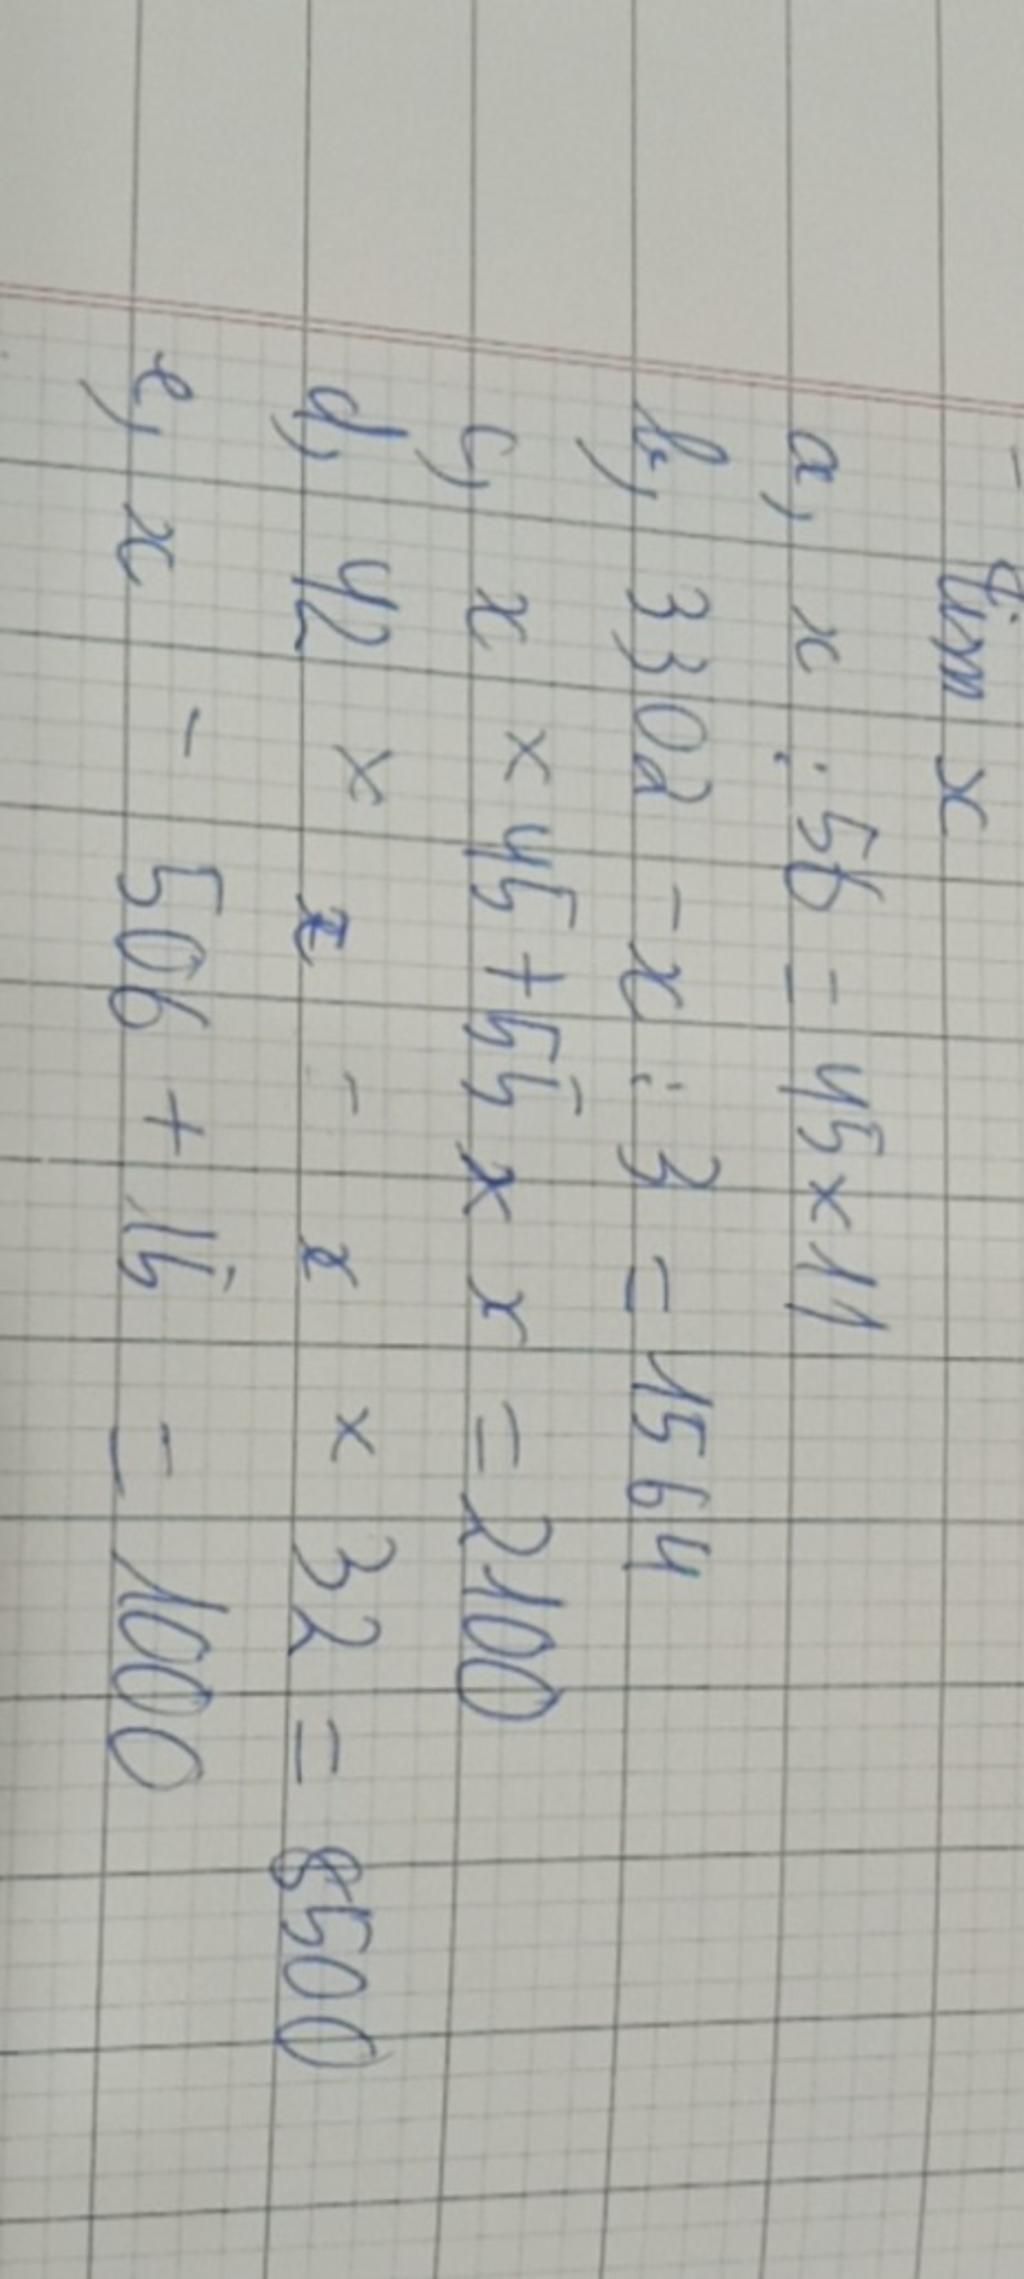 Tìm x
a, x : 56 = 45 x 11
b, 3302 - x : 3 = 1564
c, x x 45 + 55 x x = 2100
d, 42 x x - x x 32 = 8500
e, x - 506 + 15 = 1000